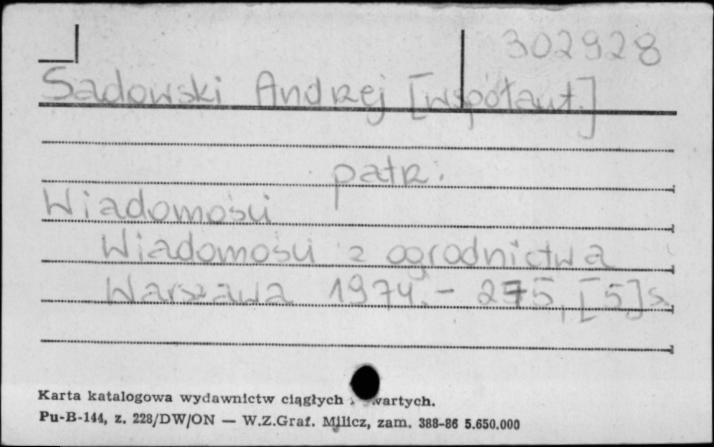 302928
Sadowski Andrzej [współaut.]
patrz.
Wiadomości
Wiadomości z ogrodnictwa
Warszawa 1974.- 275, [5] s.
Karta katalogowa wydawnictw ciągłych wartych.
Pu-B-144, z. 228/DW/ON — W.Z.Graf. Milicz, zam. 388-86 5.650.000